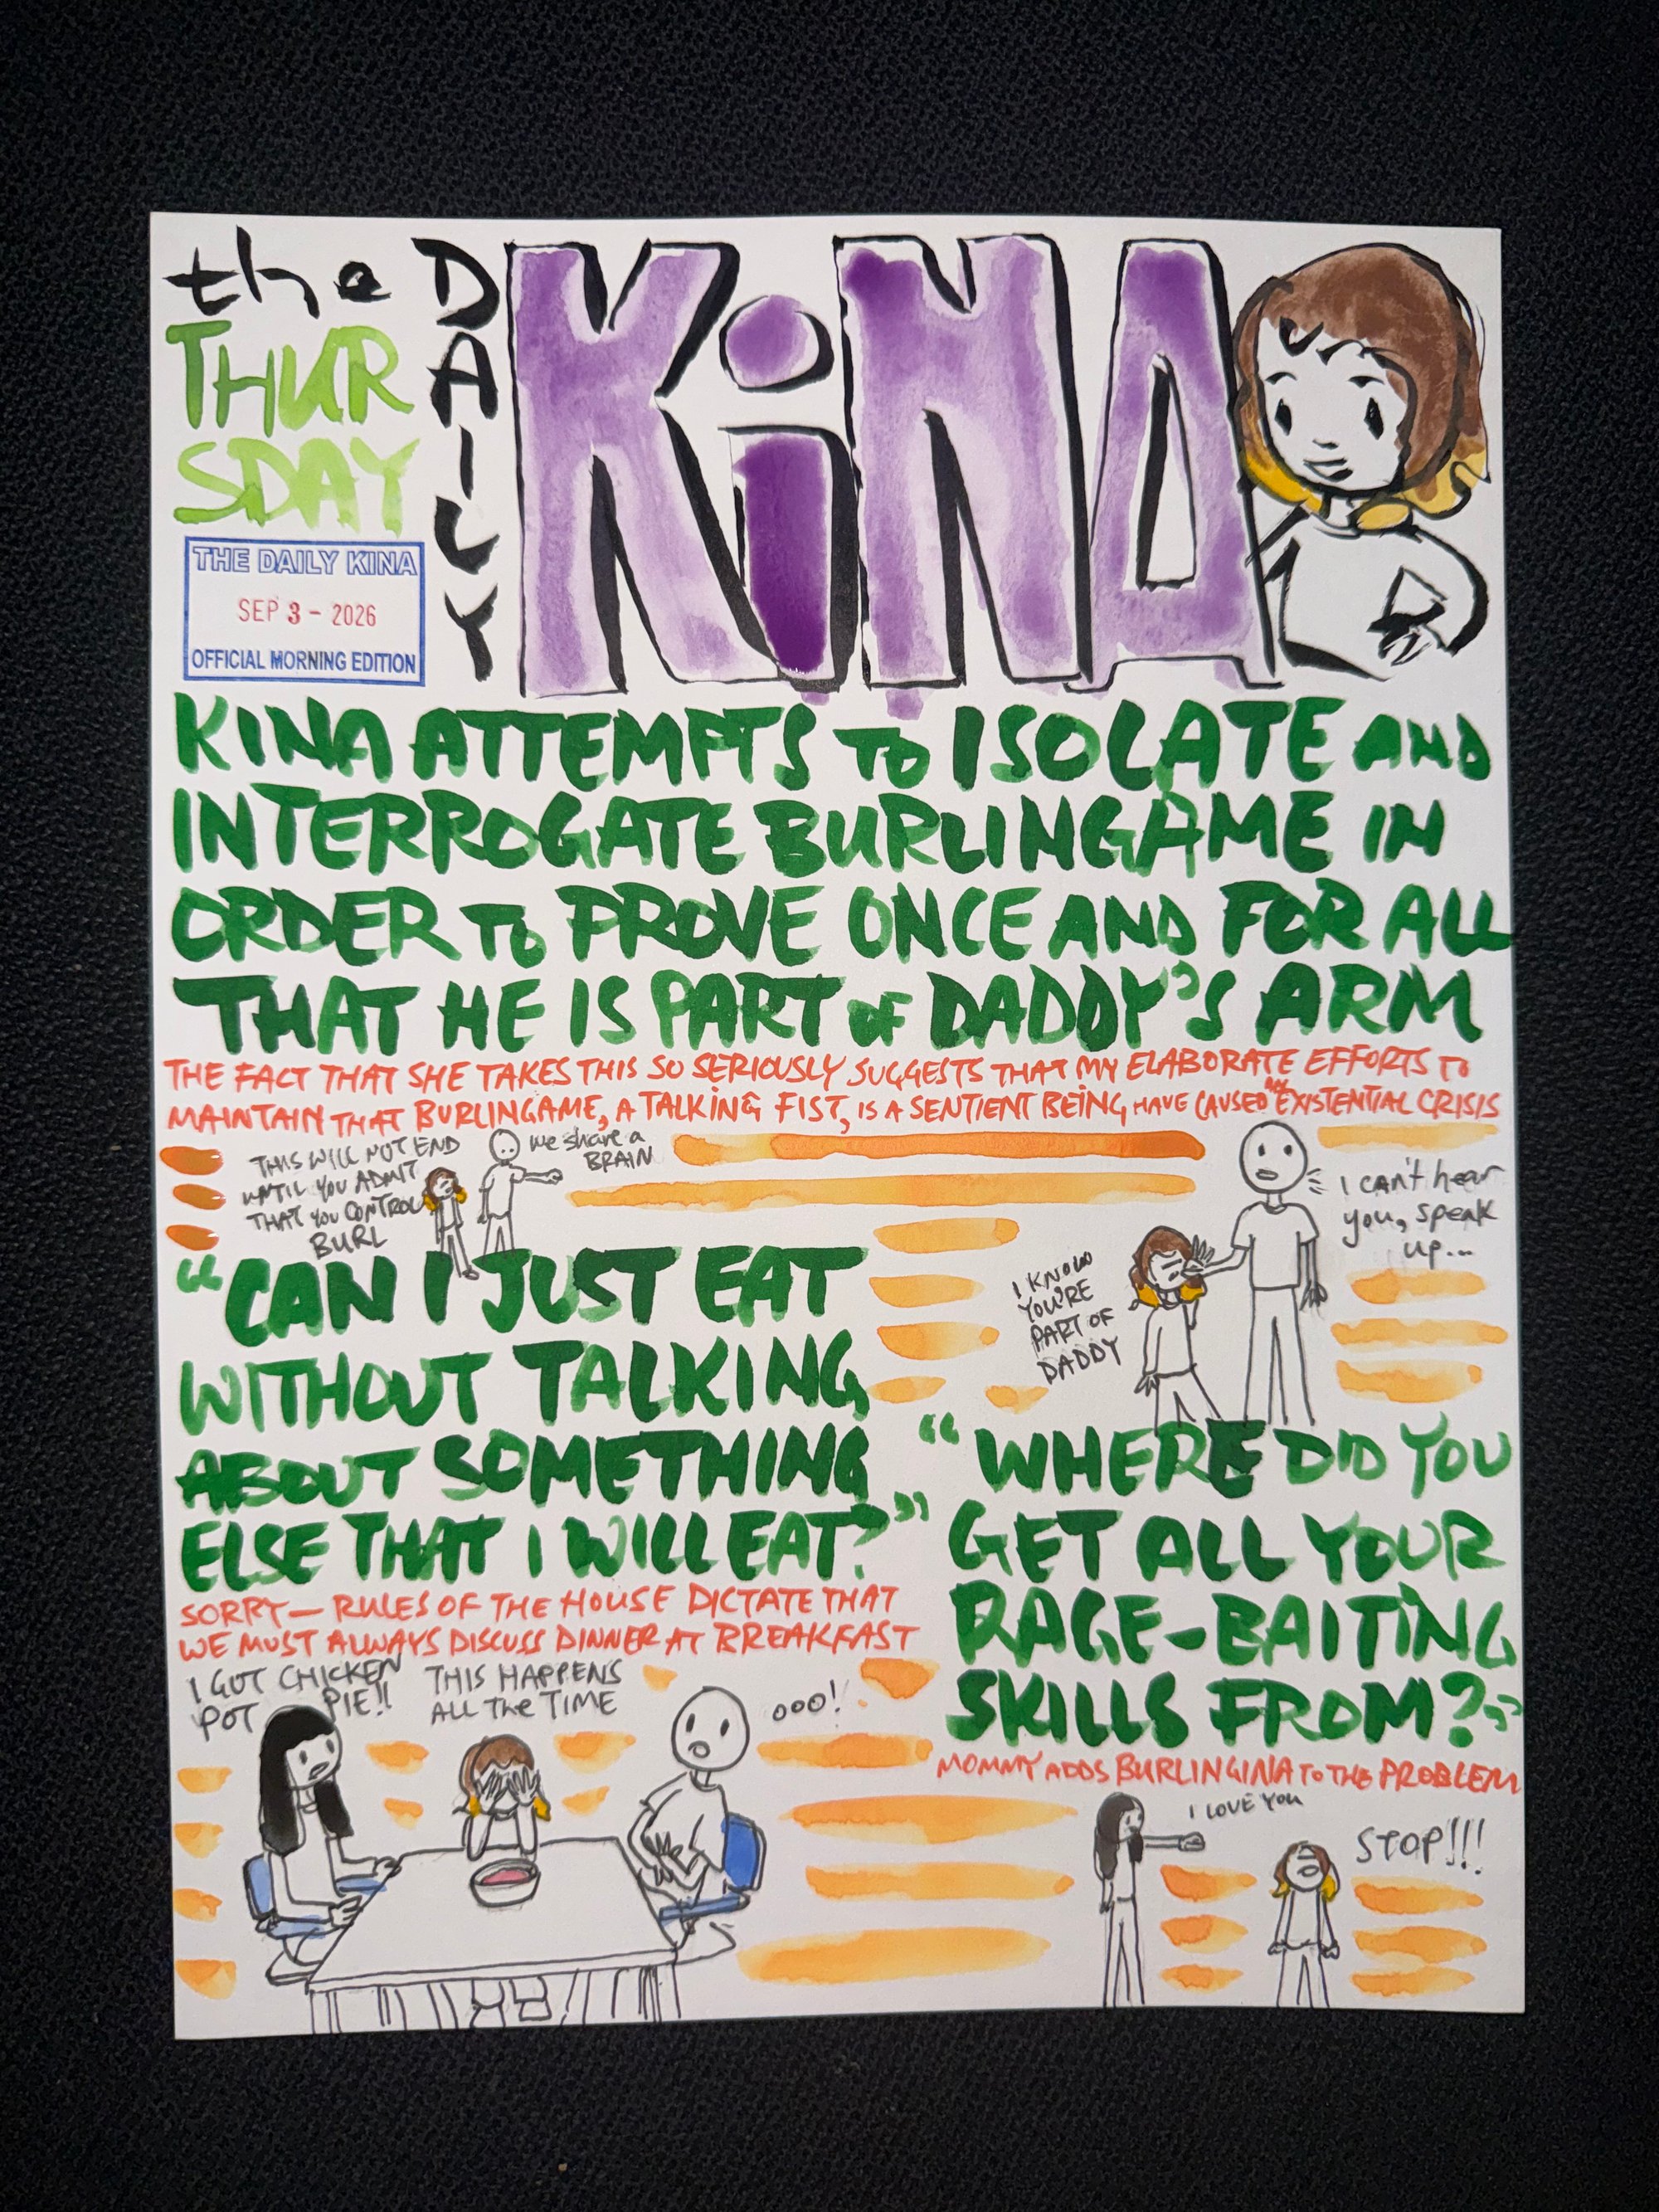 the
THUR
SDAY
DAILY
KiNA
THE DAILY KINA
SEP 3 - 2026
OFFICIAL MORNING EDITION
KINA ATTEMPTS TO ISOLATE AND
INTERROGATE BURLINGAME IN
ORDER TO PROVE ONCE AND FOR ALL
THAT HE IS PART OF DADDY'S ARM
THE FACT THAT SHE TAKES THIS SO SERIOUSLY SUGGESTS THAT MY ELABORATE EFFORTS TO
MAINTAIN THAT BURLINGAME, A TALKING FIST, IS A SENTIENT BEING HAVE CAUSED AN EXISTENTIAL CRISIS
THIS WILL NOT END
UNTIL YOU ADMIT
THAT YOU CONTROL
BURL
we share a
BRAIN
I KNOW
YOU'RE
PART OF
DADDY
I can't hear
you, speak
up...
"CAN I JUST EAT
WITHOUT TALKING
ABOUT SOMETHING
ELSE THAT I WILL EAT?"
SORRY — RULES OF THE HOUSE DICTATE THAT
WE MUST ALWAYS DISCUSS DINNER AT BREAKFAST
I GOT CHICKEN
POT PIE!!
THIS HAPPENS
ALL THE TIME
ooo!
"WHERE DID YOU
GET ALL YOUR
RAGE-BAITING
SKILLS FROM?"
MOMMY ADDS BURLINGINA TO THE PROBLEM
I LOVE YOU
STOP!!!